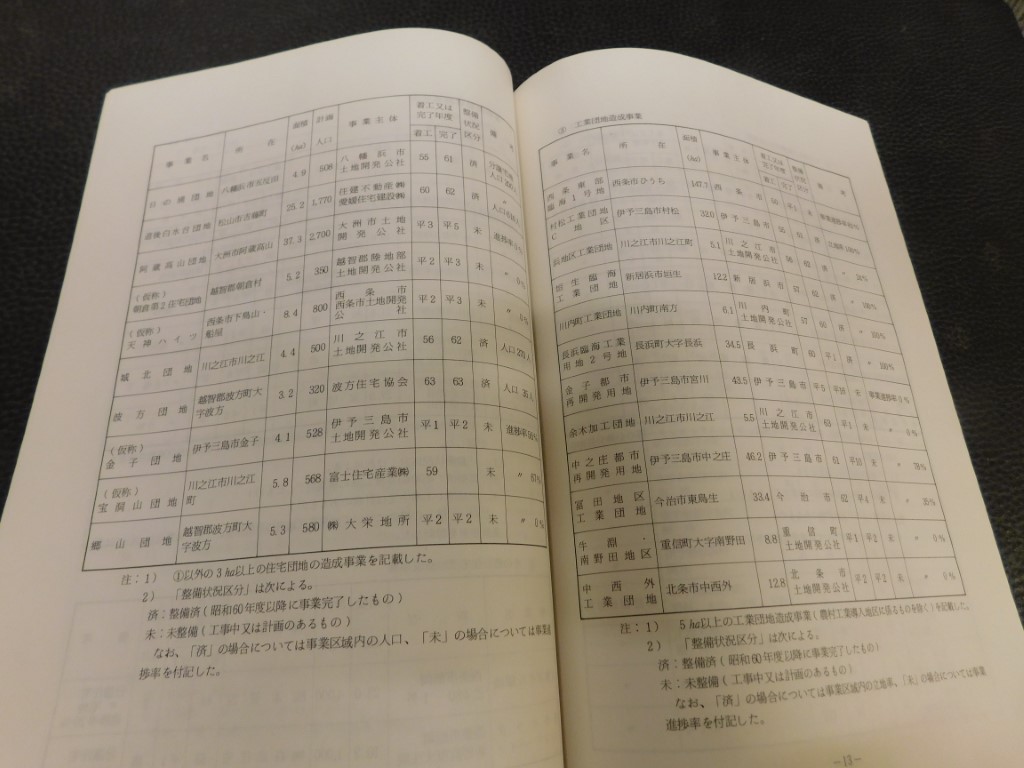 事業名 所在 面積(ha) 計画人口 事業主体 着工又は完了年度 着工 完了 整備状況区分 備考
八幡浜市五反田 4.9 508 八幡浜市土地開発公社 55 61 済
道後白水台団地 松山市吉藤町 25.2 1,770 住建不動産㈱ 愛媛住宅建設㈱ 60 62 済
阿蔵高山団地 大洲市阿蔵高山 37.3 2,700 大洲市土地開発公社 平3 平5 未 進捗率0%
(仮称)朝倉第2住宅団地 越智郡朝倉村 5.2 350 越智郡陸地部土地開発公社 平2 平3 未 〃 0%
(仮称)天神ハイツ 西条市下島山・船屋 8.4 800 西条市 西条市土地開発公社 平2 平3 未 〃 0%
城北団地 川之江市川之江 4.4 500 川之江市土地開発公社 56 62 済
波方団地 越智郡波方町大字波方 3.2 320 波方住宅協会 63 63 済
(仮称)金子団地 伊予三島市金子 4.1 528 伊予三島市土地開発公社 平1 平2 未
(仮称)宝洞山団地 川之江市川之江町 5.8 568 富士住宅産業㈱ 59 未
郷山団地 越智郡波方町大字波方 5.3 580 ㈱大栄地所 平2 平2 未 〃 0%
注:1) ①以外の3ha以上の住宅団地の造成事業を記載した。
2) 「整備状況区分」は次による。
済:整備済(昭和60年度以降に事業完了したもの)
未:未整備(工事中又は計画のあるもの)
なお、「済」の場合については事業区域内の人口、「未」の場合については事業進
捗率を付記した。
③ 工業団地造成事業
事業名 所在 面積(ha) 事業主体 着工又は完了年度 着工 完了 整備状況区分 備考
西条東部臨海1号地 西条市ひうち 147.7 西条市
村松工業団地C地区 伊予三島市村松 32.0 伊予三島市
浜地区工業団地 川之江市川之江町 5.1 川之江市土地開発公社
垣生臨海工業団地 新居浜市垣生 12.2 新居浜市
川内町工業団地 川内町南方 6.1 川内町土地開発公社
長浜臨海工業用地2号地 長浜町大字長浜 34.5 長浜町
金子都市再開発用地 伊予三島市宮川 43.5 伊予三島市
余木加工団地 川之江市川之江 5.5 川之江市土地開発公社 63 平1 未 〃 0%
中之庄都市再開発用地 伊予三島市中之庄 46.2 伊予三島市
富田地区工業団地 今治市東鳥生 33.4 今治市 62 平4 未
牛渕・南野田地区 重信町大字南野田 8.8 重信町土地開発公社 平1 平2 未 〃 0%
中西外工業団地 北条市中西外 12.8 北条市土地開発公社 平2 平2 未 〃 0%
注:1) 5ha以上の工業団地造成事業(農村工業導入地区に係るものを除く)を記載した。
2) 「整備状況区分」は次による。
済:整備済(昭和60年度以降に事業完了したもの)
未:未整備(工事中又は計画のあるもの)
なお、「済」の場合については事業区域内の立地率、「未」の場合については事業
進捗率を付記した。
-13-